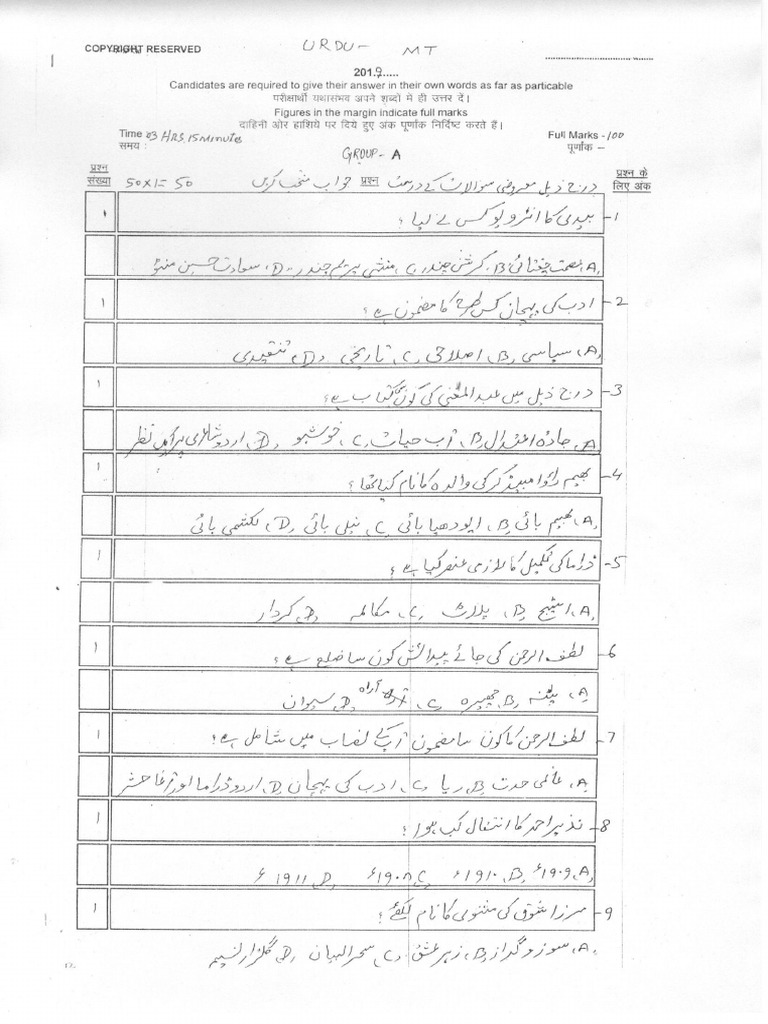 COPYRIGHT RESERVED
URDU- MT
2019.....
Candidates are required to give their answer in their own words as far as particable
परीक्षार्थी यथासंभव अपने शब्दों में ही उत्तर दें।
Figures in the margin indicate full marks
दाहिनी ओर हाशिये पर दिये हुए अंक पूर्णांक निर्दिष्ट करते हैं।
Time 03 HRS, 15 Minutes Full Marks -100
समय : पूर्णांक –
GROUP- A
प्रश्न संख्या 50x1=50 प्रश्न प्रश्न के लिए अंक
درج ذیل معروضی سوالات کے درست جواب منتخب کریں
1- بیدی کا انٹرویو کس نے لیا؟ ۱
A, عصمت چغتائی B, کرشن چندر C, منشی پریم چندر D, سعادت حسین منٹو
2- ادب کی پہچان کس طرح کا مضمون ہے؟ ۱
A, سیاسی B, اصلاحی C, تاریخی D, تنقیدی
3- درج ذیل میں عبدالمغنی کی کون سی کتاب ہے؟ ۱
A, جادۂ اعتدال B, آب حیات C, خوشبو D, اردو شاعری پر ایک نظر
4- بھیم راؤ امبیڈکر کی والدہ کا نام کیا تھا؟ ۱
A, بھیم بائی B, ایودھیا بائی C, نیلی بائی D, لکشمی بائی
5- ڈراما کی تکمیل کا لازمی عنصر کیا ہے؟ ۱
A, اسٹیج B, پلاٹ C, مکالمہ D, کردار
6- لطف الرحمن کی جائے پیدائش کون سا ضلع ہے؟ ۱
A, پٹنہ B, چھپرہ C, آراہ D, سیوان
7- لطف الرحمن کا کون سا مضمون آپ کے نصاب میں شامل ہے؟ ۱
A, عالمی حدت B, ریا C, ادب کی پہچان D, اردو ڈراما اور آغا حشر
8- نذیر احمد کا انتقال کب ہوا؟ ۱
A, ۱۹۰۹ء B, ۱۹۱۰ء C, ۱۹۰۸ء D, ۱۹۱۱ء
9- مرزا شوق کی مثنوی کا نام لکھئے؟ ۱
A, سوز و گداز B, زہر عشق C, سحرالبیان D, گلزار نسیم